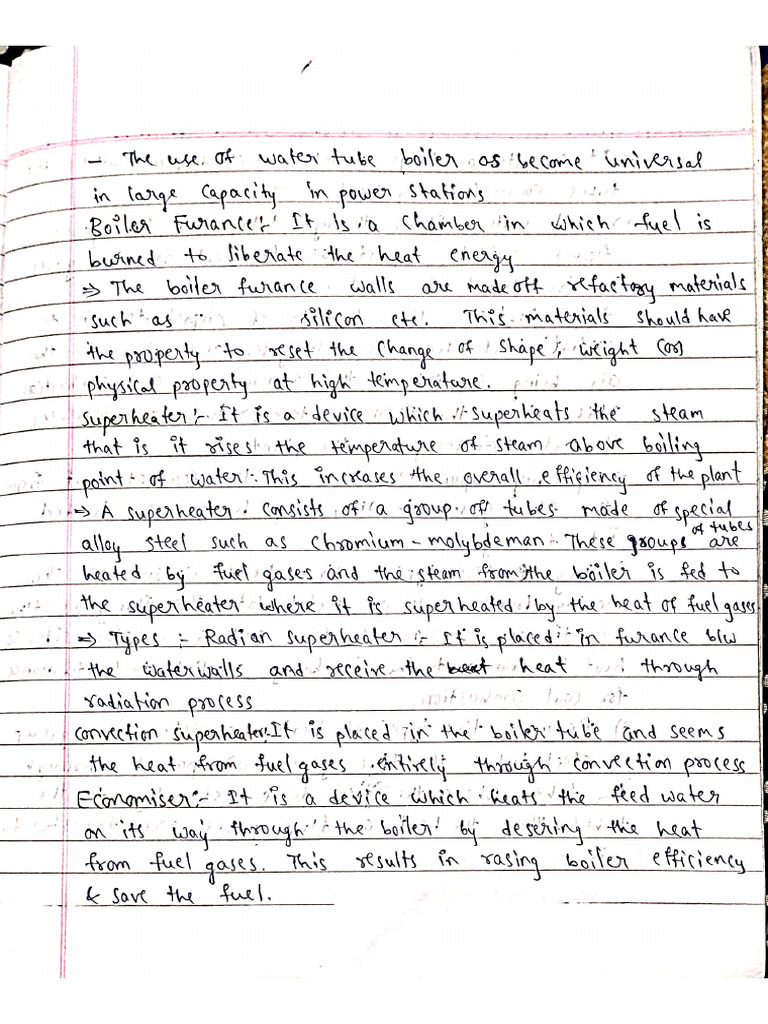 - The use of water tube boiler as become universal
in large capacity in power stations
Boiler Furance :- It is a chamber in which fuel is
burned to liberate the heat energy
⇒ The boiler furance walls are made off refactory materials
such as silicon etc. This materials should have
the property to reset the change of shape, weight (or)
physical property at high temperature.
Superheater :- It is a device which superheats the steam
that is it rises the temperature of steam above boiling
point of water. This increases the overall efficiency of the plant
⇒ A superheater consists of a group of tubes made of special
alloy steel such as chromium-molybdeman. These groups of tubes are
heated by fuel gases and the steam from the boiler is fed to
the superheater where it is superheated by the heat of fuel gases
⇒ Types :- Radian superheater :- It is placed in furance b/w
the waterwalls and receive the heat through
radiation process
convection superheater. It is placed in the boiler tube and seems
the heat from fuel gases entirely through convection process
Economiser :- It is a device which heats the feed water
on its way through the boiler by desering the heat
from fuel gases. This results in rasing boiler efficiency
& save the fuel.